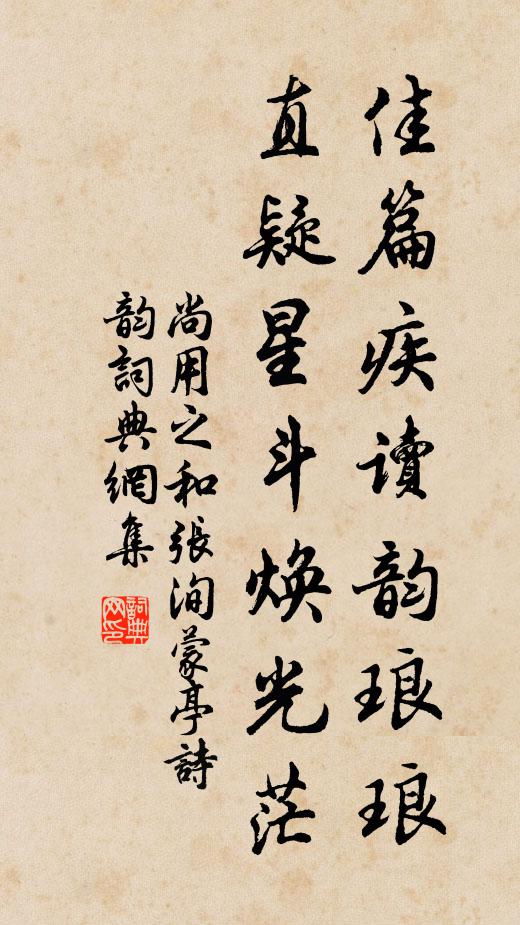 佳篇疾讀韵琅琅
直疑星斗焕光茫
尚用之和張洵蒙亭詩
韵詞典網集
詞典网印